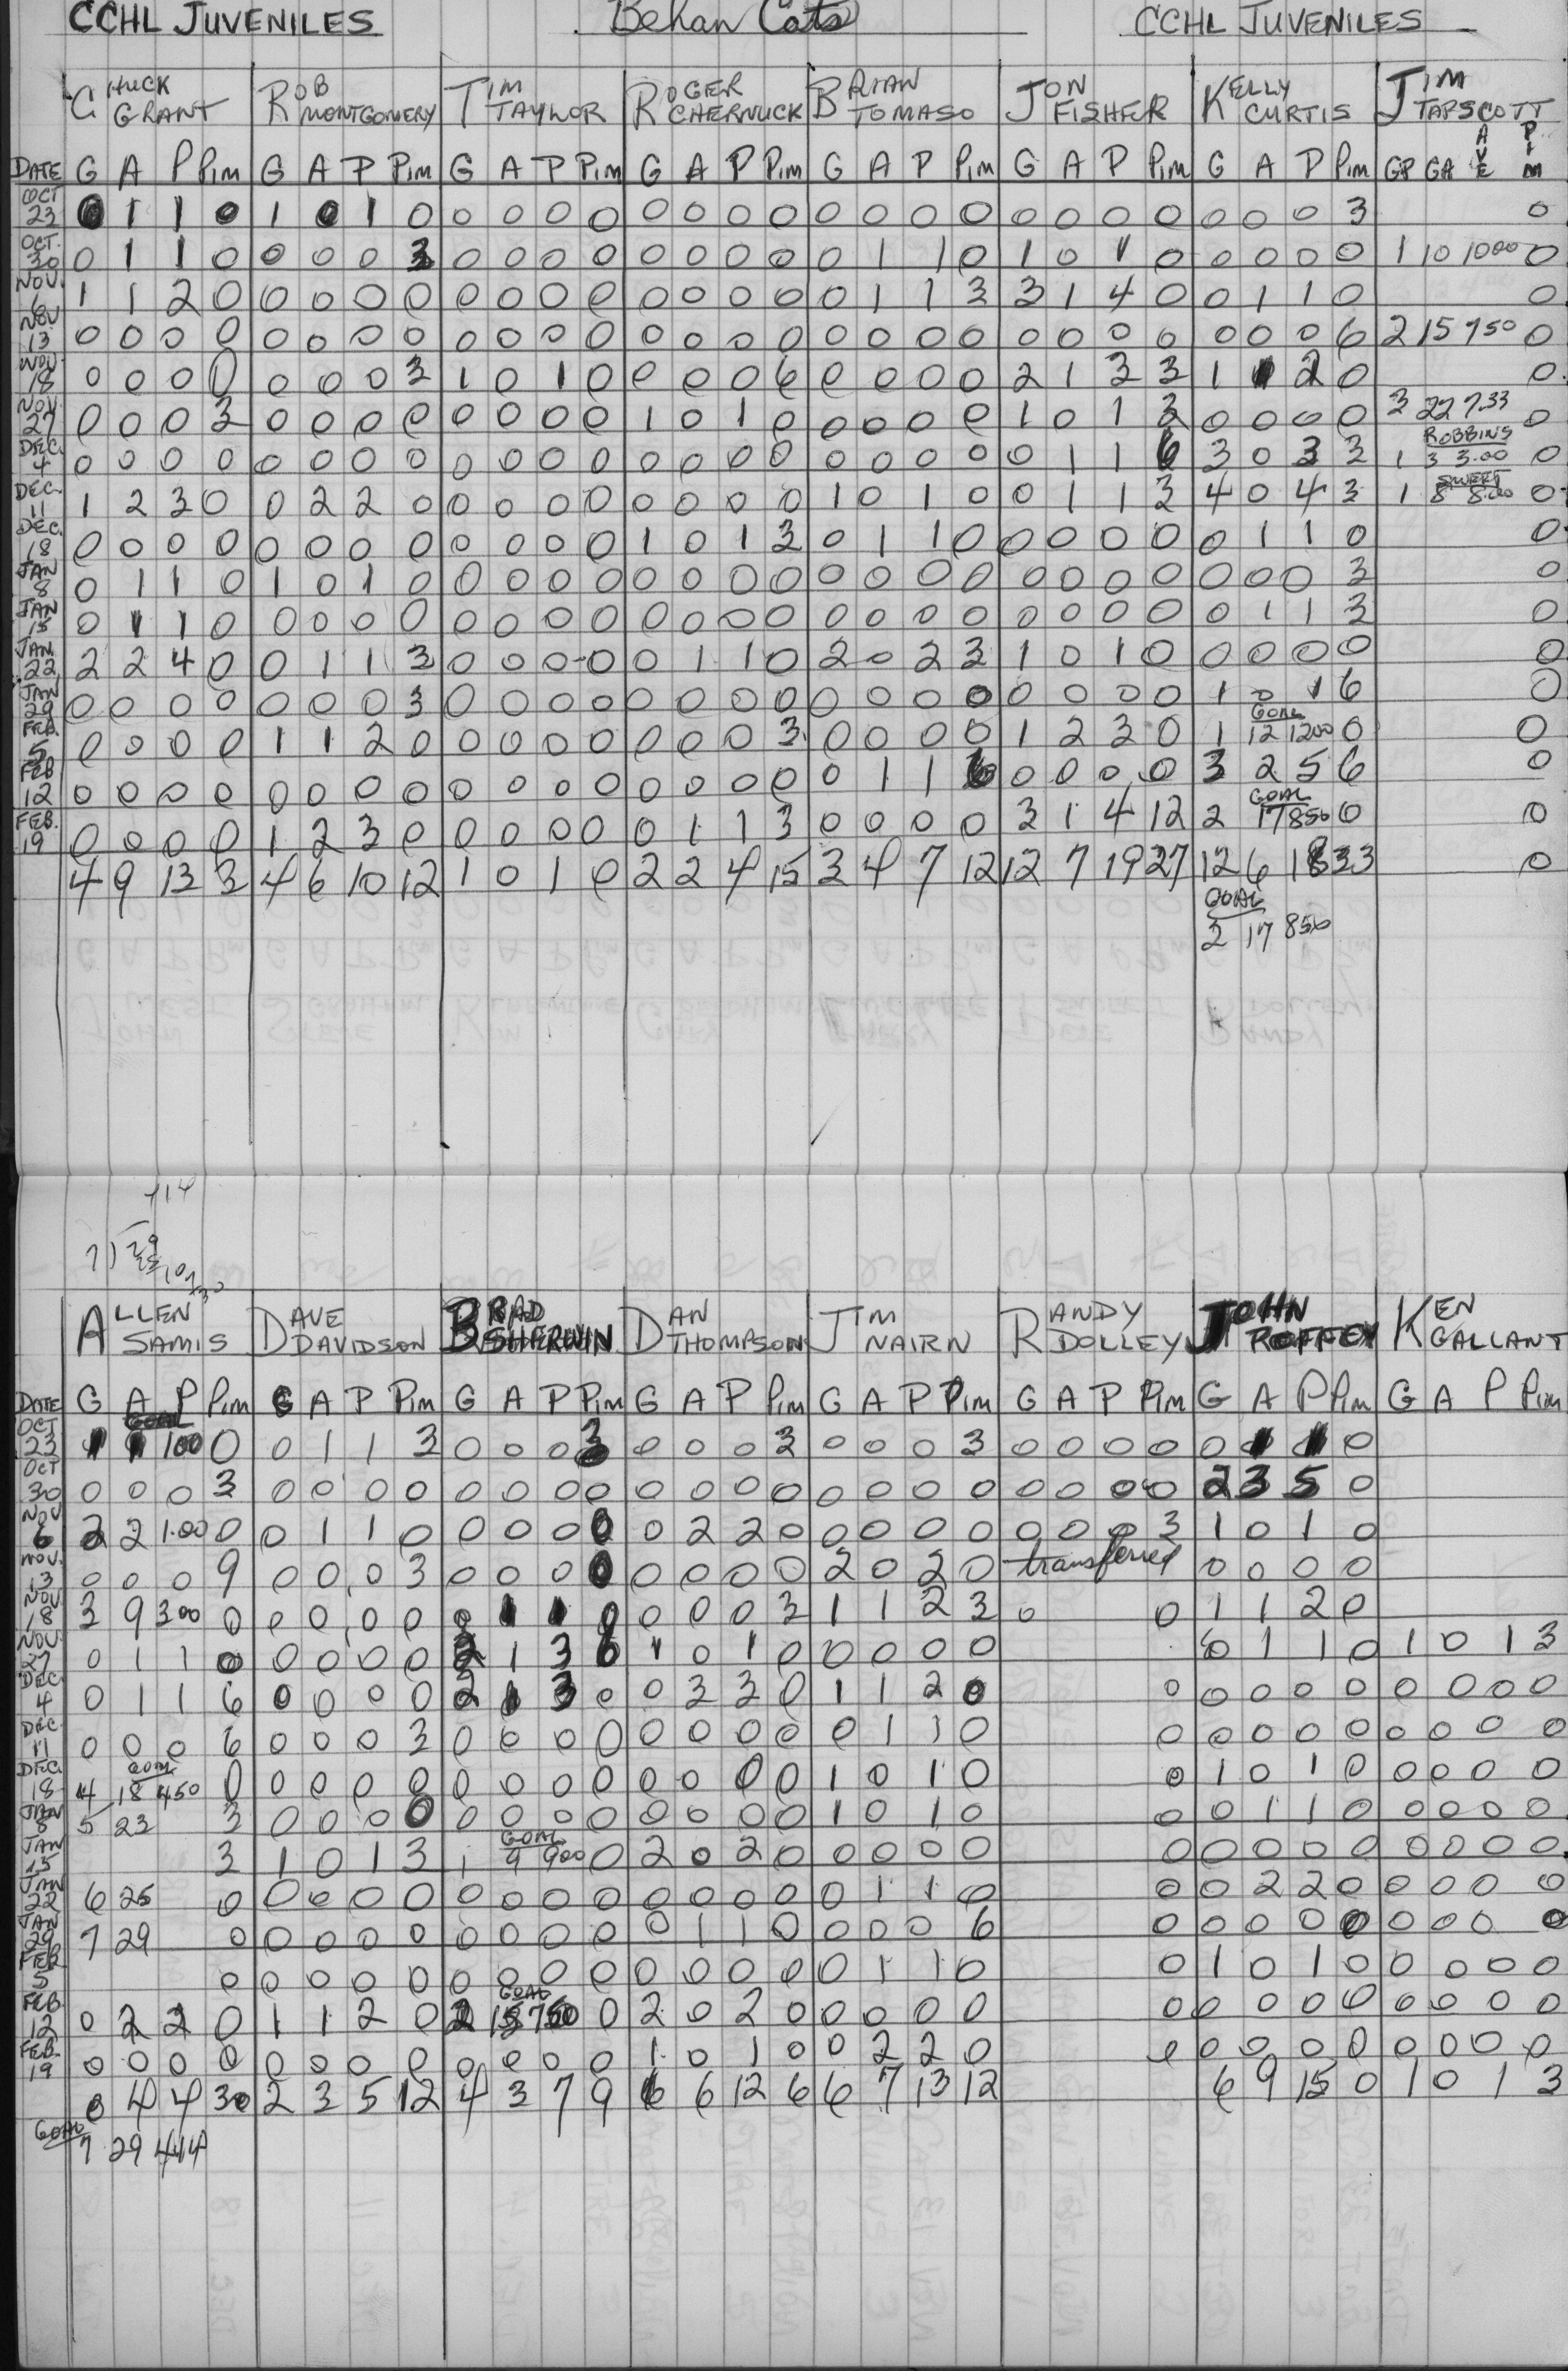 CCHL JUVENILES Bekan Cats CCHL JUVENILES
CHUCK GRANT ROB MONTGOMERY TIM TAYLOR ROGER CHERNUCK BRIAN TOMASO JON FISHER KELLY CURTIS JIM TAPSCOTT
DATE G A P Pim G A P Pim G A P Pim G A P Pim G A P Pim G A P Pim G A P Pim GP GA AVE PIM
OCT 23 0 1 1 0 1 0 1 0 0 0 0 0 0 0 0 0 0 0 0 0 0 0 0 0 0 0 0 3 0
OCT. 30 0 1 1 0 0 0 0 3 0 0 0 0 0 0 0 0 0 1 1 0 1 0 1 0 0 0 0 0 1 10 1000 0
NOV. 6 1 1 2 0 0 0 0 0 0 0 0 0 0 0 0 0 0 1 1 3 3 1 4 0 0 1 1 0 0
NOV 13 0 0 0 0 0 0 0 0 0 0 0 0 0 0 0 0 0 0 0 0 0 0 0 0 0 0 0 6 2 15 750 0
NOV 18 0 0 0 0 0 0 0 3 1 0 1 0 0 0 0 6 0 0 0 0 2 1 3 3 1 1 2 0 0
NOV. 27 0 0 0 3 0 0 0 0 0 0 0 0 1 0 1 0 0 0 0 0 1 0 1 3 0 0 0 0 3 22 7.33 0
DEC. 4 0 0 0 0 0 0 0 0 0 0 0 0 0 0 0 0 0 0 0 0 0 1 1 6 3 0 3 3 ROBBINS 1 3 3.00 0
DEC. 11 1 2 3 0 0 2 2 0 0 0 0 0 0 0 0 0 1 0 1 0 0 1 1 3 4 0 4 3 SWEET 1 8 8.00 0
DEC. 18 0 0 0 0 0 0 0 0 0 0 0 0 1 0 1 3 0 1 1 0 0 0 0 0 0 1 1 0 0
JAN 8 0 1 1 0 1 0 1 0 0 0 0 0 0 0 0 0 0 0 0 0 0 0 0 0 0 0 0 3 0
JAN 15 0 1 1 0 0 0 0 0 0 0 0 0 0 0 0 0 0 0 0 0 0 0 0 0 0 1 1 3 0
JAN 22 2 2 4 0 0 1 1 3 0 0 0 0 0 1 1 0 2 0 2 3 1 0 1 0 0 0 0 0 0
JAN 29 0 0 0 0 0 0 0 3 0 0 0 0 0 0 0 0 0 0 0 0 0 0 0 0 1 0 1 6 0
FEB. 5 0 0 0 0 1 1 2 0 0 0 0 0 0 0 0 3 0 0 0 0 1 2 3 0 GOAL 1 12 1200 0 0
FEB 12 0 0 0 0 0 0 0 0 0 0 0 0 0 0 0 0 0 1 1 6 0 0 0 0 3 2 5 6 0
FEB. 19 0 0 0 0 1 2 3 0 0 0 0 0 0 1 1 3 0 0 0 0 3 1 4 12 GOAL 2 17 850 0 0
4 9 13 3 4 6 10 12 1 0 1 0 2 2 4 15 3 4 7 12 12 7 19 27 12 6 18 33 0
GOAL
2 17 850
414
7)29
ALLEN SAMIS DAVE DAVIDSON BRAD SHERWIN DAN THOMPSON JIM NAIRN RANDY DOLLEY JOHN ROFFEY KEN GALLANT
DATE G A P Pim G A P Pim G A P Pim G A P Pim G A P Pim G A P Pim G A P Pim G A P Pim
OCT 23 GOAL 1 1 100 0 0 1 1 3 0 0 0 3 0 0 0 3 0 0 0 3 0 0 0 0 0 1 1 0
OCT 30 0 0 0 3 0 0 0 0 0 0 0 0 0 0 0 0 0 0 0 0 0 0 0 0 2 3 5 0
NOV 6 2 2 1.00 0 0 1 1 0 0 0 0 0 0 2 2 0 0 0 0 0 0 0 0 3 1 0 1 0
NOV. 13 0 0 0 9 0 0 0 3 0 0 0 0 0 0 0 0 2 0 2 0 transferred 0 0 0 0
NOV 18 3 9 300 0 0 0 0 0 0 1 1 0 0 0 0 3 1 1 2 3 0 0 1 1 2 0
NOV. 27 0 1 1 0 0 0 0 0 2 1 3 6 1 0 1 0 0 0 0 0 0 1 1 0 1 0 1 3
DEC. 4 0 1 1 6 0 0 0 0 2 1 3 0 0 3 3 0 1 1 2 0 0 0 0 0 0 0 0 0 0
DEC. 11 0 0 0 6 0 0 0 3 0 0 0 0 0 0 0 0 0 1 1 0 0 0 0 0 0 0 0 0 0
DEC. 18 GOAL 4 18 450 0 0 0 0 0 0 0 0 0 0 0 0 0 1 0 1 0 0 1 0 1 0 0 0 0 0
JAN 8 5 23 3 0 0 0 0 0 0 0 0 0 0 0 0 1 0 1 0 0 0 1 1 0 0 0 0 0
JAN 15 3 1 0 1 3 GOAL 1 9 900 0 2 0 2 0 0 0 0 0 0 0 0 0 0 0 0 0 0
JAN 22 6 25 0 0 0 0 0 0 0 0 0 0 0 0 0 0 1 1 0 0 0 2 2 0 0 0 0 0
JAN 29 7 29 0 0 0 0 0 0 0 0 0 0 1 1 0 0 0 0 6 0 0 0 0 0 0 0 0 0
FEB 5 0 0 0 0 0 0 0 0 0 0 0 0 0 0 1 1 0 0 1 0 1 0 0 0 0 0
FEB. 12 0 2 2 0 1 1 2 0 GOAL 2 15 750 0 2 0 2 0 0 0 0 0 0 0 0 0 0 0 0 0 0
FEB. 19 0 0 0 0 0 0 0 0 0 0 0 0 1 0 1 0 0 2 2 0 0 0 0 0 0 0 0 0 0
0 4 4 30 2 3 5 12 4 3 7 9 6 6 12 6 6 7 13 12 6 9 15 0 1 0 1 3
GOAL 7 29 414